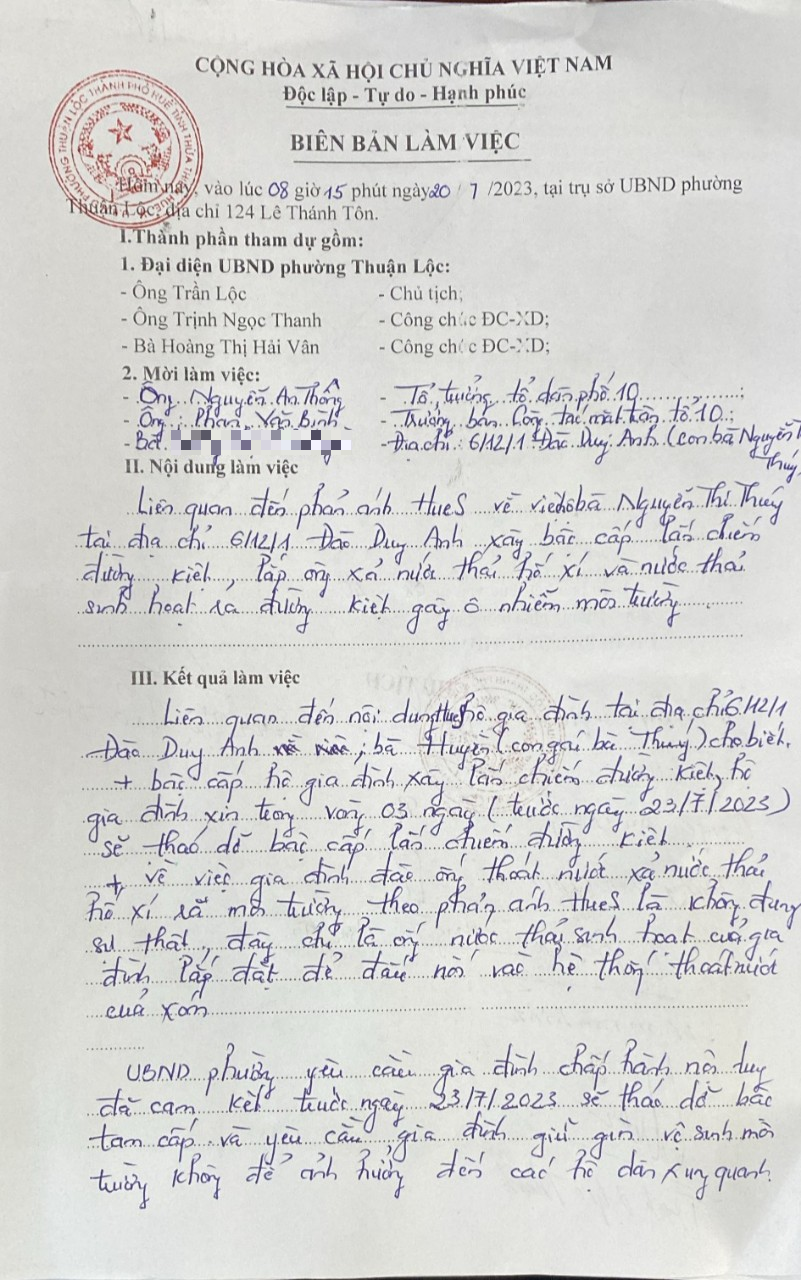 CỘNG HÒA XÃ HỘI CHỦ NGHĨA VIỆT NAM
Độc lập - Tự do - Hạnh phúc
BIÊN BẢN LÀM VIỆC
Hôm nay, vào lúc 08 giờ 15 phút ngày 20 / 7 /2023, tại trụ sở UBND phường
Thuận Lộc, địa chỉ 124 Lê Thánh Tôn.
I.Thành phần tham dự gồm:
1. Đại diện UBND phường Thuận Lộc:
- Ông Trần Lộc - Chủ tịch;
- Ông Trịnh Ngọc Thanh - Công chức ĐC-XD;
- Bà Hoàng Thị Hải Vân - Công chức ĐC-XD;
2. Mời làm việc:
- Ông Nguyễn An Thống - Tổ trưởng tổ dân phố 10;
- Ông: Phan Văn Bình - Trưởng ban Công tác mặt trận tổ 10;
- Bà: - Địa chỉ: 6/12/1 Đào Duy Anh (con bà Nguyễn T
Thúy
II. Nội dung làm việc
Liên quan đến phản ánh HueS về việc bà Nguyễn Thị Thúy
tại địa chỉ 6/12/1 Đào Duy Anh xây bậc cấp lấn chiếm
đường kiệt, lắp ống xả nước thải hố xí và nước thải
sinh hoạt ra đường kiệt gây ô nhiễm môi trường
III. Kết quả làm việc
Liên quan đến nội dung hộ gia đình tại địa chỉ 6/12/1
Đào Duy Anh, bà Huyền (con gái bà Thúy) cho biết.
+ bậc cấp hộ gia đình xây lấn chiếm đường kiệt, hộ
gia đình xin trong vòng 03 ngày (trước ngày 23/7/2023)
sẽ tháo dỡ bậc cấp lấn chiếm đường kiệt
+ về việc gia đình đào ống thoát nước xả nước thải
hố xí ra môi trường theo phản ánh HueS là không đúng
sự thật, đây chỉ là ống nước thải sinh hoạt của gia
đình lắp đặt để đấu nối vào hệ thống thoát nước
của xóm
UBND phường yêu cầu gia đình chấp hành nội duy
đã cam kết trước ngày 23/7/2023 sẽ tháo dỡ bậc
tam cấp và yêu cầu gia đình giữ gìn vệ sinh môi
trường không để ảnh hưởng đến các hộ dân xung quanh.